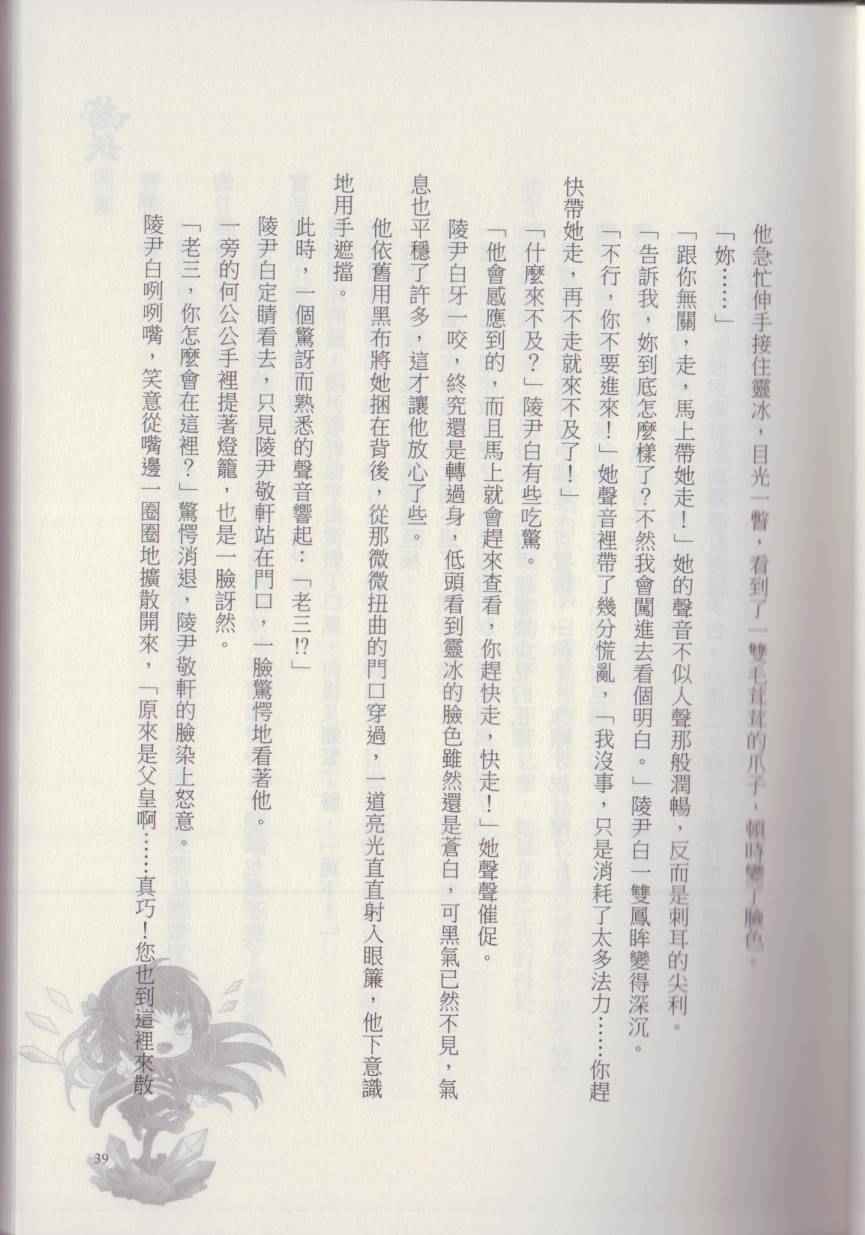 他急忙伸手接住靈冰，目光一瞥，看到了一雙毛茸茸的爪子，頓時變了臉色。
「妳……」
「跟你無關，走，馬上帶她走！」她的聲音不似人聲那般潤暢，反而是刺耳的尖利。
「告訴我，妳到底怎麼樣了？不然我會闖進去看個明白。」陵尹白一雙鳳眸變得深沉。
「不行，你不要進來！」她聲音裡帶了幾分慌亂，「我沒事，只是消耗了太多法力……你趕
快帶她走，再不走就來不及了！」
「什麼來不及？」陵尹白有些吃驚。
「他會感應到的，而且馬上就會趕來查看，你趕快走，快走！」她聲聲催促。
陵尹白牙一咬，終究還是轉過身，低頭看到靈冰的臉色雖然還是蒼白，可黑氣已然不見，氣
息也平穩了許多，這才讓他放心了些。
他依舊用黑布將她捆在背後，從那微微扭曲的門口穿過，一道亮光直直射入眼簾，他下意識
地用手遮擋。
此時，一個驚訝而熟悉的聲音響起：「老三!?」
陵尹白定睛看去，只見陵尹敬軒站在門口，一臉驚愕地看著他。
一旁的何公公手裡提著燈籠，也是一臉訝然。
「老三，你怎麼會在這裡？」驚愕消退，陵尹敬軒的臉染上怒意。
陵尹白咧咧嘴，笑意從嘴邊一圈圈地擴散開來，「原來是父皇啊……真巧！您也到這裡來散
39